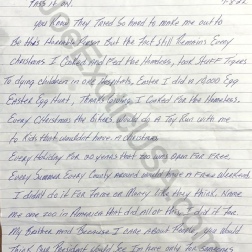 Pass it on.
you Know They Tored So hard to make me out to
Be this Horrible Person But the Fact still Remains Every
Christmas I Cooked and Fed the Homeless, took Stuff Tigers
To dying children in one Hospitals, Easter I did a 10,000 Egg
Easter Egg Hunt, Thanks Giving, I Cooked For the Homeless.
Every Christmas the Bikers would do A Toy Run with me
to Kids that wouldn't have A Christmas
Every Holiday For 30 years that Zoo was open For Free
Every Summer Every County around would have A Free Weekend
I didn't do it For Fame or Money like they think. Name
me one Zoo in America that did all of this. I did it For
My Brother and Because I Care About People. you would
Think Our President Would See I'm here only For